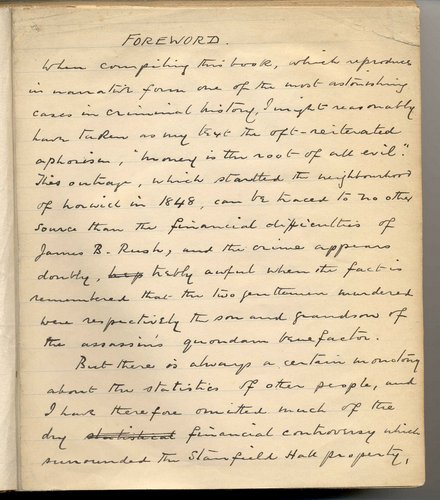 FOREWORD.
When compiling this book, which reproduces
in narrative form one of the most astonishing
cases in criminal history, I might reasonably
have taken as my text the oft-reiterated
aphorism, "money is the root of all evil".
This outrage, which startled the neighbourhood
of Norwich in 1848, can be traced to no other
source than the financial difficulties of
James B. Rush, and the crime appears
doubly, trebly awful when the fact is
remembered that the two gentlemen murdered
were respectively the son and grandson of
the assassin's quondam benefactor.
But there is always a certain monotony
about the statistics of other people, and
I have therefore omitted much of the
dry statistical financial controversy which
surrounded the Stanfield Hall property,